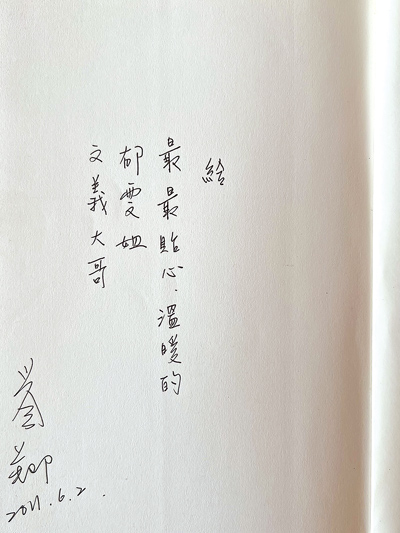 給
最最貼心.溫暖的
郁雯姐
文義大哥
2011.6.2.